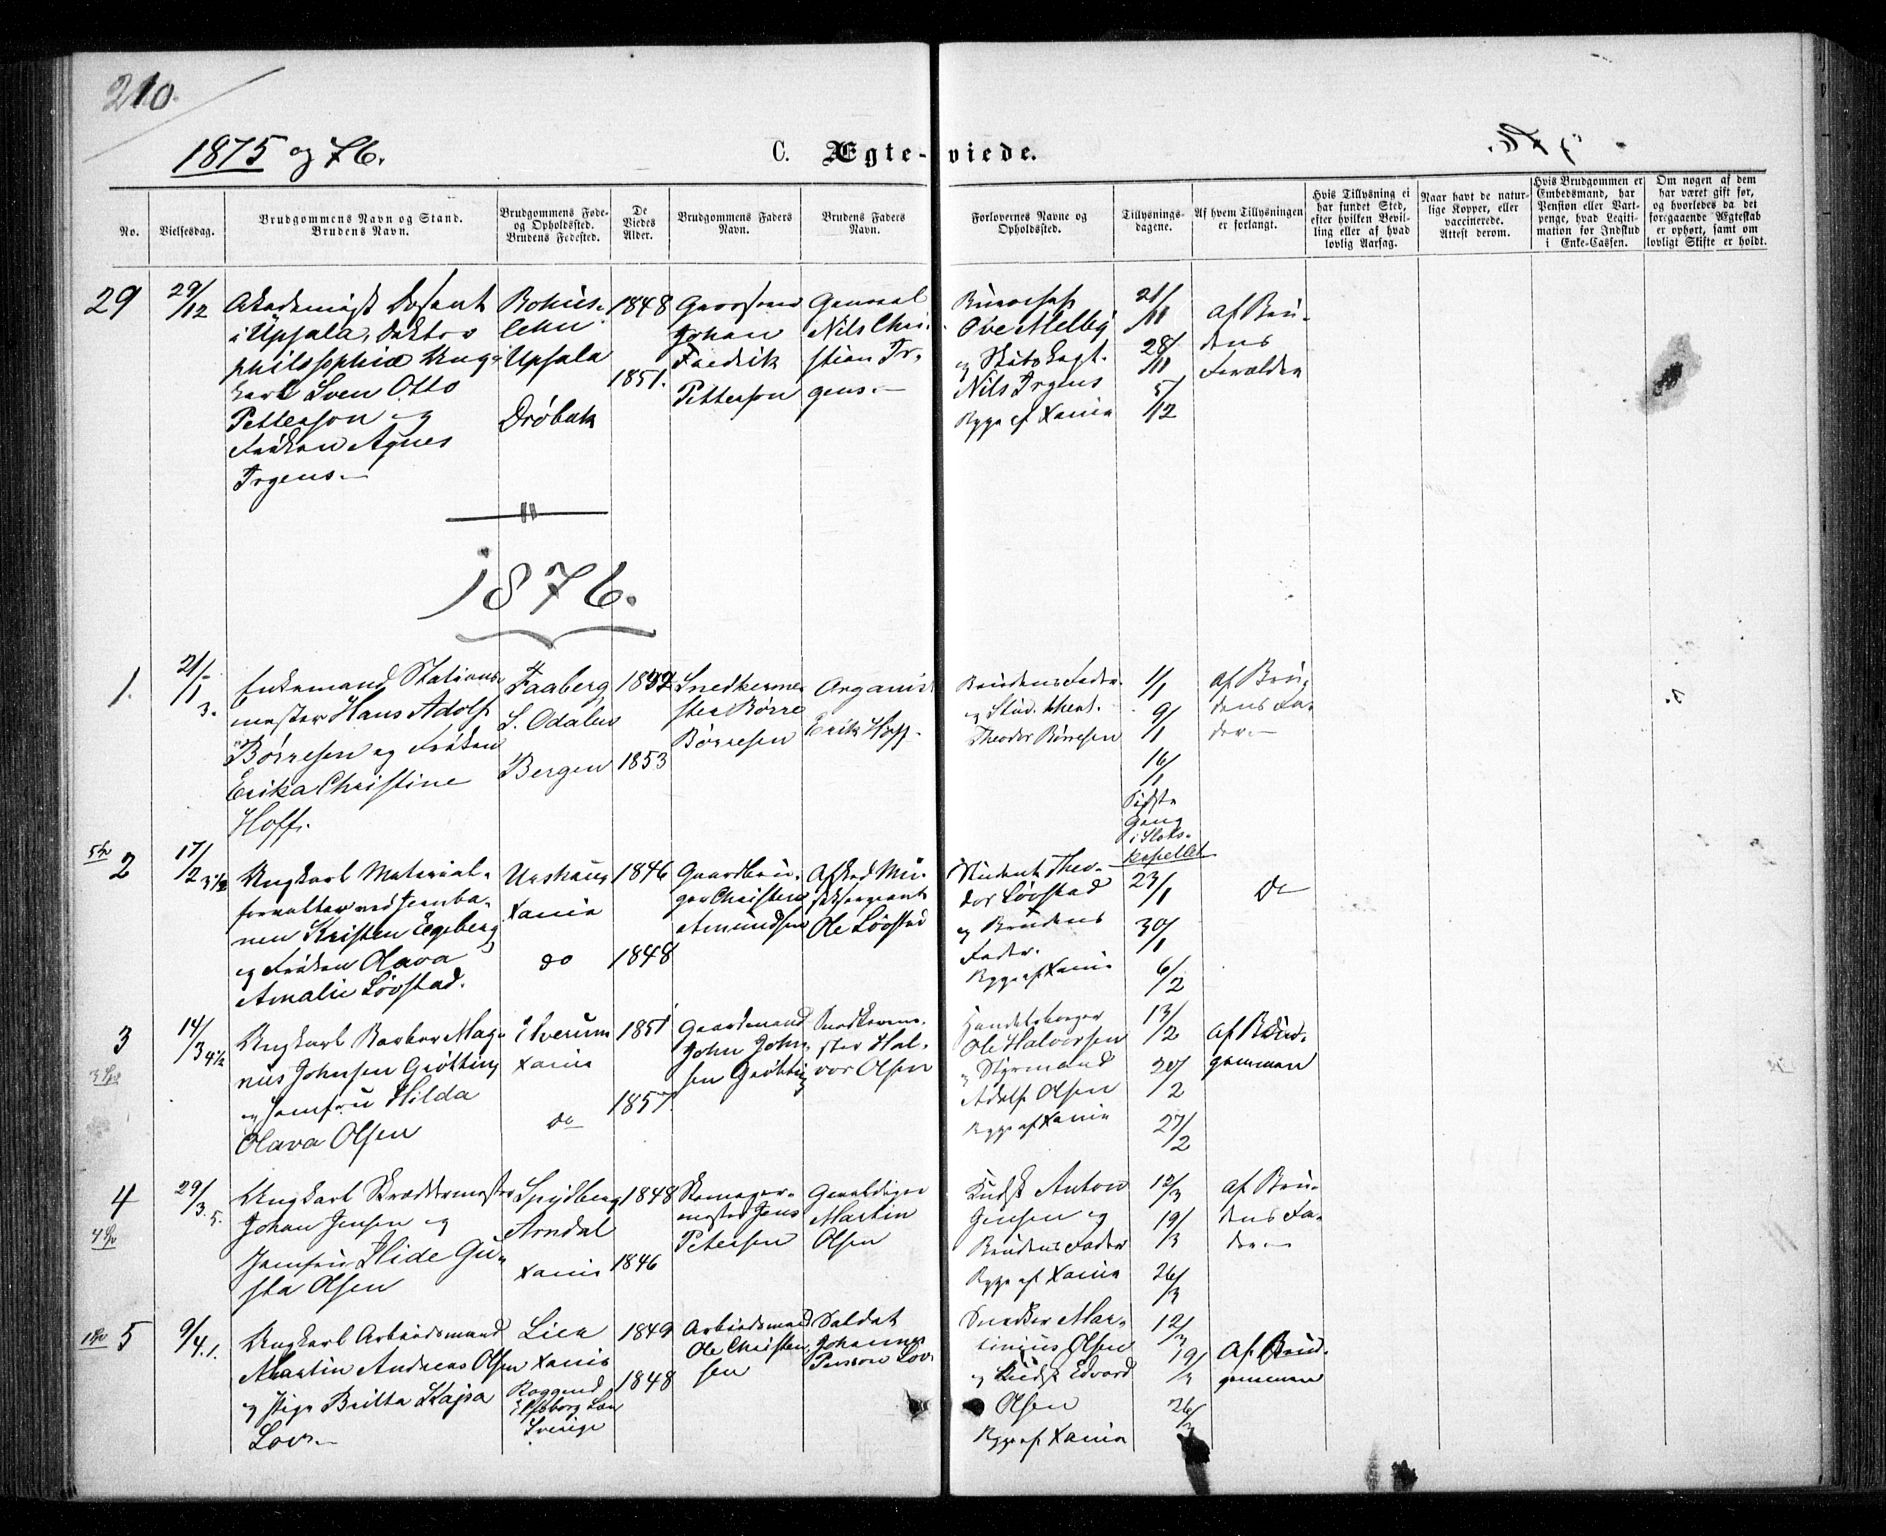 210.
1875 og 76.
C. Ægte-viede.
No.
Vielsesdag.
Brudgommens Navn og Stand.
Brudens Navn.
Brudgommens Føde-
og Opholdssted.
Brudens Fødested.
De
Viedes
Alder.
Brudgommens Faders
Navn.
Brudens Faders
Navn.
Forlovernes Navne og
Opholdssted.
Tillysnings-
dagene.
Af hvem Tillysningen
er forlangt.
Hvis Tillysning ei
har fundet Sted,
efter hvilken Bevil-
ling eller af hvad
lovlig Aarsag.
Naar havt de natur-
lige Kopper, eller
vaccinerede.
Attest derom.
Hvis Brudgommen er
Embedsmand, har
Pension eller Vart-
penge, hvad Legiti-
mation for Indskud
i Enke-Cassen.
Om nogen af dem
har været gift før,
og hvorledes da det
foregaaende Ægteskab
er ophørt, samt om
lovligt Skifte er holdt.
29
29/12
Akademisk Dosent
i Upsala, Doktor
philosophiæ Ung-
karl Sven Otto
Petterson og
Frøken Agnes
Irgens.
Bohus-
lehn
Upsala
Drøbak
1848
1851.
Johan
Fredrik
Petterson
General
Nils Chri-
stian Ir-
gens.
Ove Melbÿ
Nils Irgens
Begge af Xania
21/11
28/11
5/12
af Bru-
dens
Forældre
1876.
1.
21/1
3.
Enkemand Stations-
mester Hans Adolf
Børresen og Frøken
Erika Christine
Hoff.
Faaberg
S. Odalen
Bergen
18
1853
Snedkerme-
ster Børre
Børresen
Organist
Erik Hoff.
Brudens Fader
og Stud.
Theodor Børresen
1/1
9/1
16/1
Sidste
Gang
i Slots-
kapellet
af Bru-
dens Fa-
der
2
17/2
5 1/2
Ungkarl Material-
forvalter ved Jernba-
nen Kristen Egeberg
og Frøken Olava
Amalie Løvstad.
Urskoug
Xania
do
1846
1848
Gaardbru-
ger Christen
Amundsen
Afsked Mu-
siksergeant
Ole Løvstad
Student Theo-
dor Løvstad
og Brudens
Fader.
Begge af Xania
23/1
30/1
6/2
do
3
14/3
4 1/2
Ungkarl Barber Mag-
nus Johnsen Grøtting
og Jomfru Hilda
Olava Olsen
Elverum
Xania
do
1851
1857.
Gaardmand
John John-
sen Grøtting
Snedkerme-
ster Hal-
vor Olsen
Handelsborger
Ole Halvorsen
og Styrmand
Adolf Olsen
Begge af Xania
13/2
20/2
27/2
af Brud-
gommen
4
29/3
5.
Ungkarl Skreddermester
Johan Jensen og
Jomfru Hilde Gu-
sta Olsen
Spydberg
Arndal
Xania
1848
1846
Skomager-
mester Jens
Petersen
Gevaldiger
Martin
Olsen
Kudsk Anton
Jensen og
Brudens Fader
Begge af Xania
12/3
19/3
26/3
af Bru-
dens Fa-
der
5
9/4
1.
Ungkarl Arbeidsmand
Martin Andreas Olsen
og Pige Britta Kajsa
Lov
Lier
Xania
Elfsborg Len
Sverige
1849
1848
Arbeidsmand
Ole Christen-
sen
Soldat
Johannes
Person Lov
Snedker Mar-
tinius Olsen
og Kudsk Edvard
Olsen
Begge af Xania
12/3
19/3
26/3
af Brud-
gommen